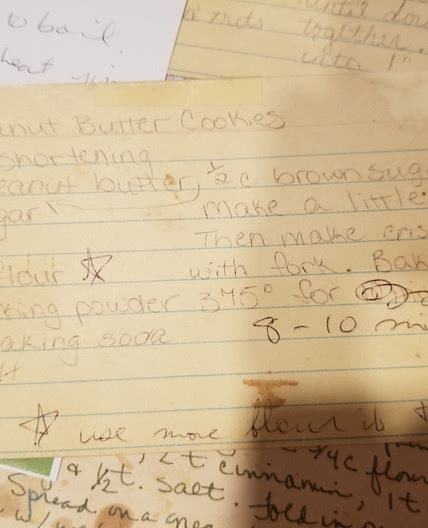 to boil
heat
until dou
nuts together.
into 1"
anut Butter Cookies
shortening
eanut butter, 1/2 c brown sug
gar make a little
Then make cris
flour ☆ with fork. Bak
king powder 375° for
aking soda 8-10 mi
lt
☆ use more flour if
, 2 t cinnamon, 3/4c flour
& 1/2t. salt. 1t
Spread on a grea fold in